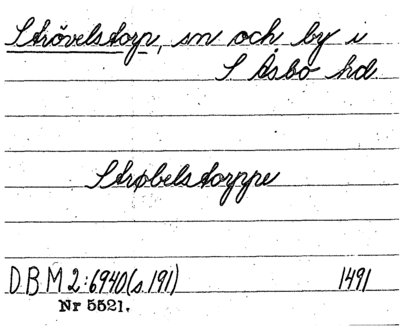 Strövelstorp, sn och by i
S Åsbo hd
Strøbelstorppe
DBM 2:6940 (s 191) 1491
Nr 5521.